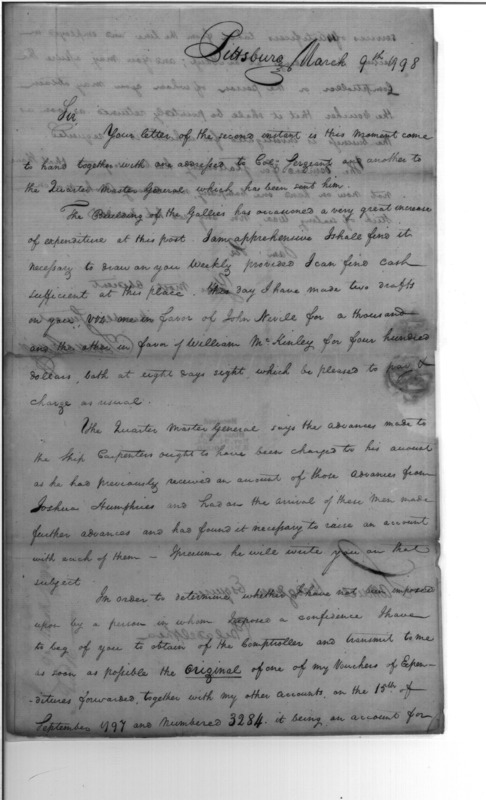 Pittsburg March 9th 1798
Sir
Your letter of the second instant is this moment come
to hand together with one addressed to Col. Sergent and another to
the Quarter Master General which has been sent him.
The Building of the Gallies has occasioned a very great increase
of expenditure at this post. I am apprehensive I shall find it
necessary to draw on you weekly provided I can find cash
sufficient at this place. This day I have made two drafts
on you, viz one in favor of John Nevill for a thousand
and the other in favor of William McKinley for four hundred
dollars, both at eight days sight, which be pleased to pay &
charge as usual.
The Quarter Master General says the advances made to
the Ship Carpenters ought to have been charged to his account
as he had previously received an account of those advances from
Joshua Humphries and had on the arrival of these men made
further advances and had found it necessary to raise an account
with each of them – I presume he will write you on that
subject
In order to determine whether I have not been imposed
upon by a person in whom I reposed a confidence I have
to beg of you to obtain of the Comptroller and transmit to me
as soon as possible the original of one of my Vouchers of Expen-
-ditures forwarded, together with my other accounts, on the 15th of
September 1797 and numbered 3284. it being an account for